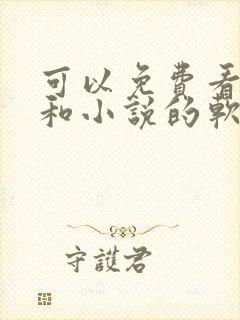 可以免費看
和小說的軟
守護君